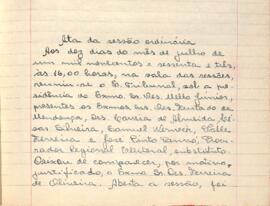 Ata da sessão ordinária
Aos dez dias do mês de julho de
um mil novecentos e sessenta e três,
às 16,00 horas, na sala das sessões,
reuniu-se o E. Tribunal, sob a pre-
sidência do Exmo. Sr. Des. Mello Junior,
presentes os Exmos. Srs. Des. Furtado de
Mendonça, Drs. Correia de Almeida,
Oliveira, Samuel Werneck,
Ferreira e José Pinto Renó, Procu-
rador Regional Eleitoral, substituto.
Deixou de comparecer, por motivo
justificado, o Exmo. Sr. Des. Ferreira
de Oliveira. Aberta a sessão, foi